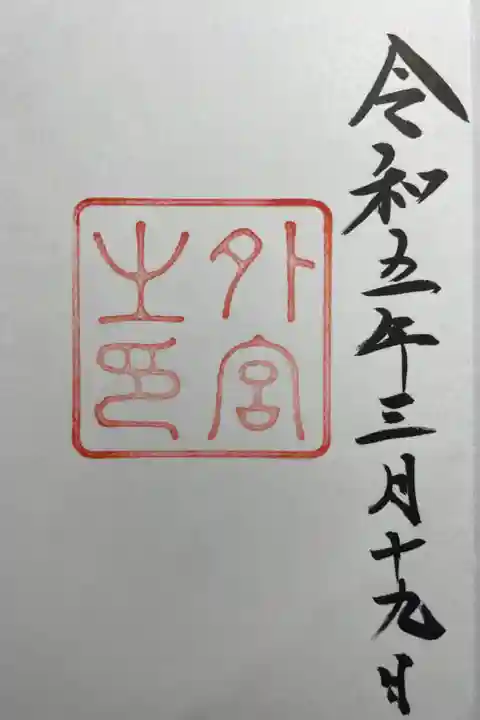 令和五年三月十九日
外宮
之印